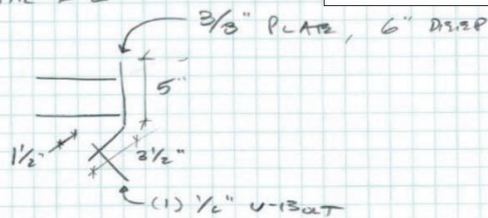 3/8" PLATE, 6" DEEP
5"
1 1/2"
3 1/2"
(1) 1/2" U-BOLT